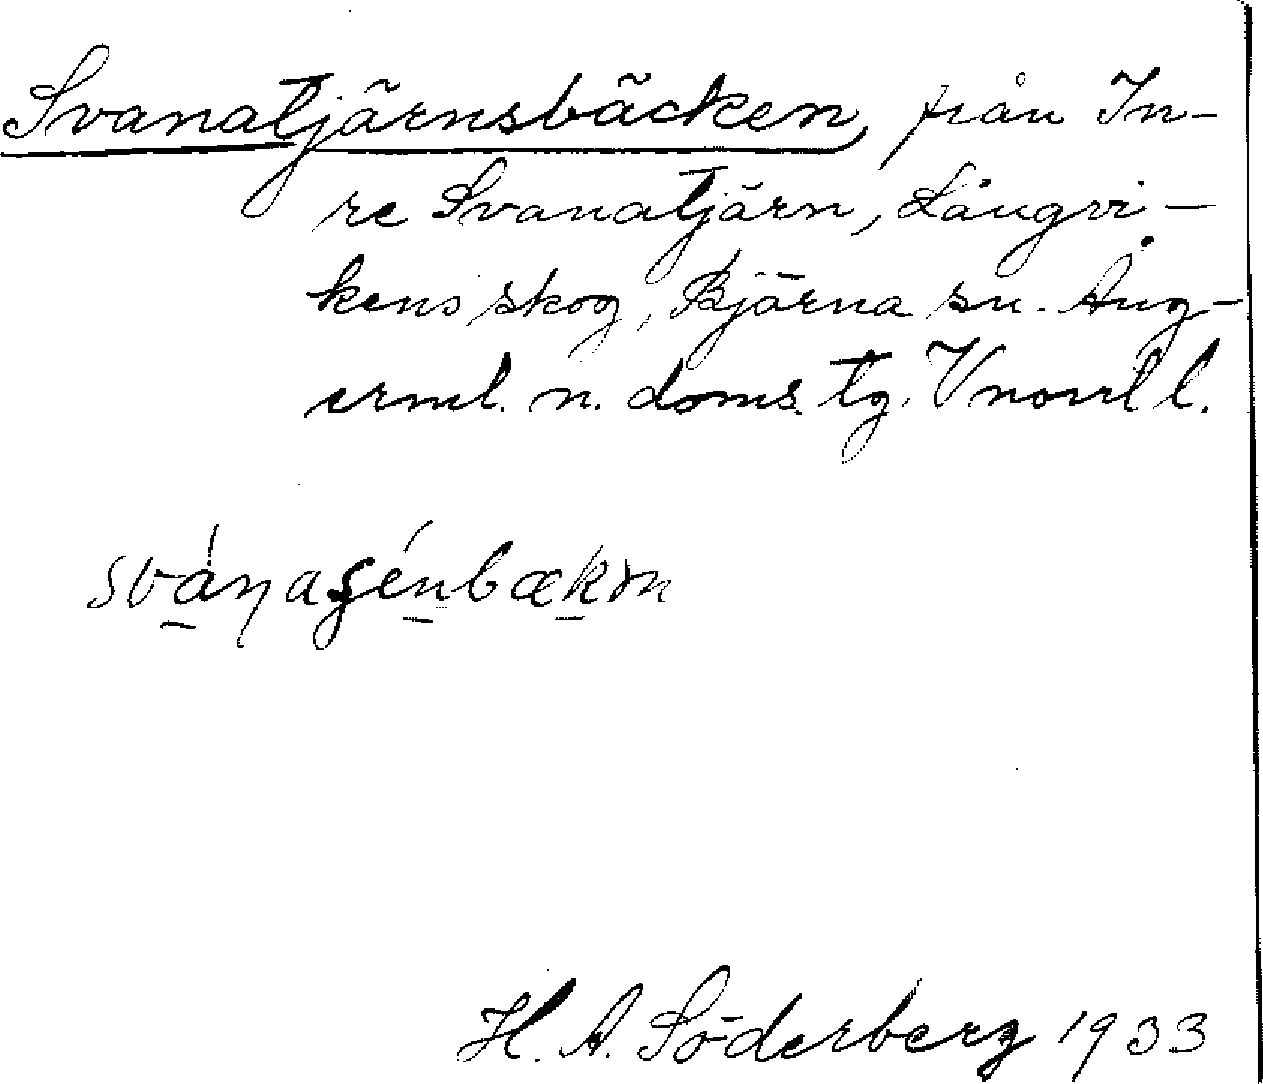 Svanatjärnsbäcken, från In-
re Svanatjärn, Långvi-
kens skog, Bjärna sn. Ång-
erml. n. doms. tg. Vnorrl l.
H. A. Söderberg 1933